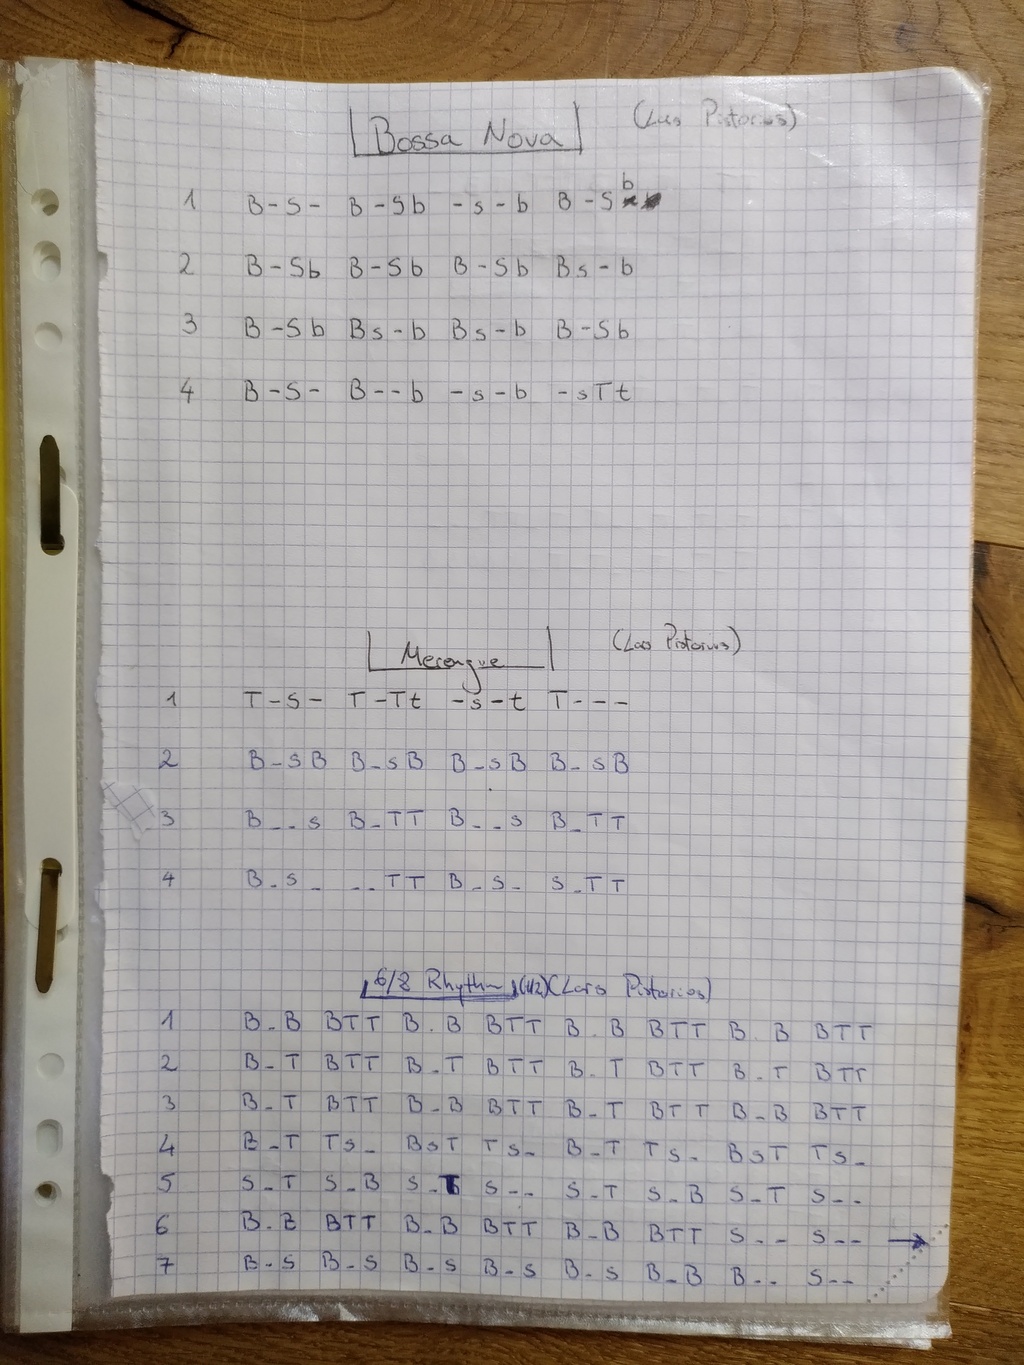 Bossa Nova (Lars Pistorius)
1 B-S- B-Sb -s-b B-Sb
2 B-Sb B-Sb B-Sb Bs-b
3 B-Sb Bs-b Bs-b B-Sb
4 B-S- B--b -s-b -sTt
Merengue (Lars Pistorius)
1 T-S- T-Tt -s-t T---
2 B-sB B-sB B-sB B-sB
3 B--s B-TT B--s B-TT
4 B-s- --TT B-s- s-TT
6/8 Rhythm (1/2) (Lars Pistorius)
1 B-B BTT B-B BTT B-B BTT B-B BTT
2 B-T BTT B-T BTT B-T BTT B-T BTT
3 B-T BTT B-B BTT B-T BTT B-B BTT
4 B-T Ts- BsT Ts- B-T Ts- BsT Ts-
5 S-T S-B S-T S-- S-T S-B S-T S--
6 B-B BTT B-B BTT B-B BTT S-- S-- →
7 B-S B-S B-S B-S B-S B-B B-- S--